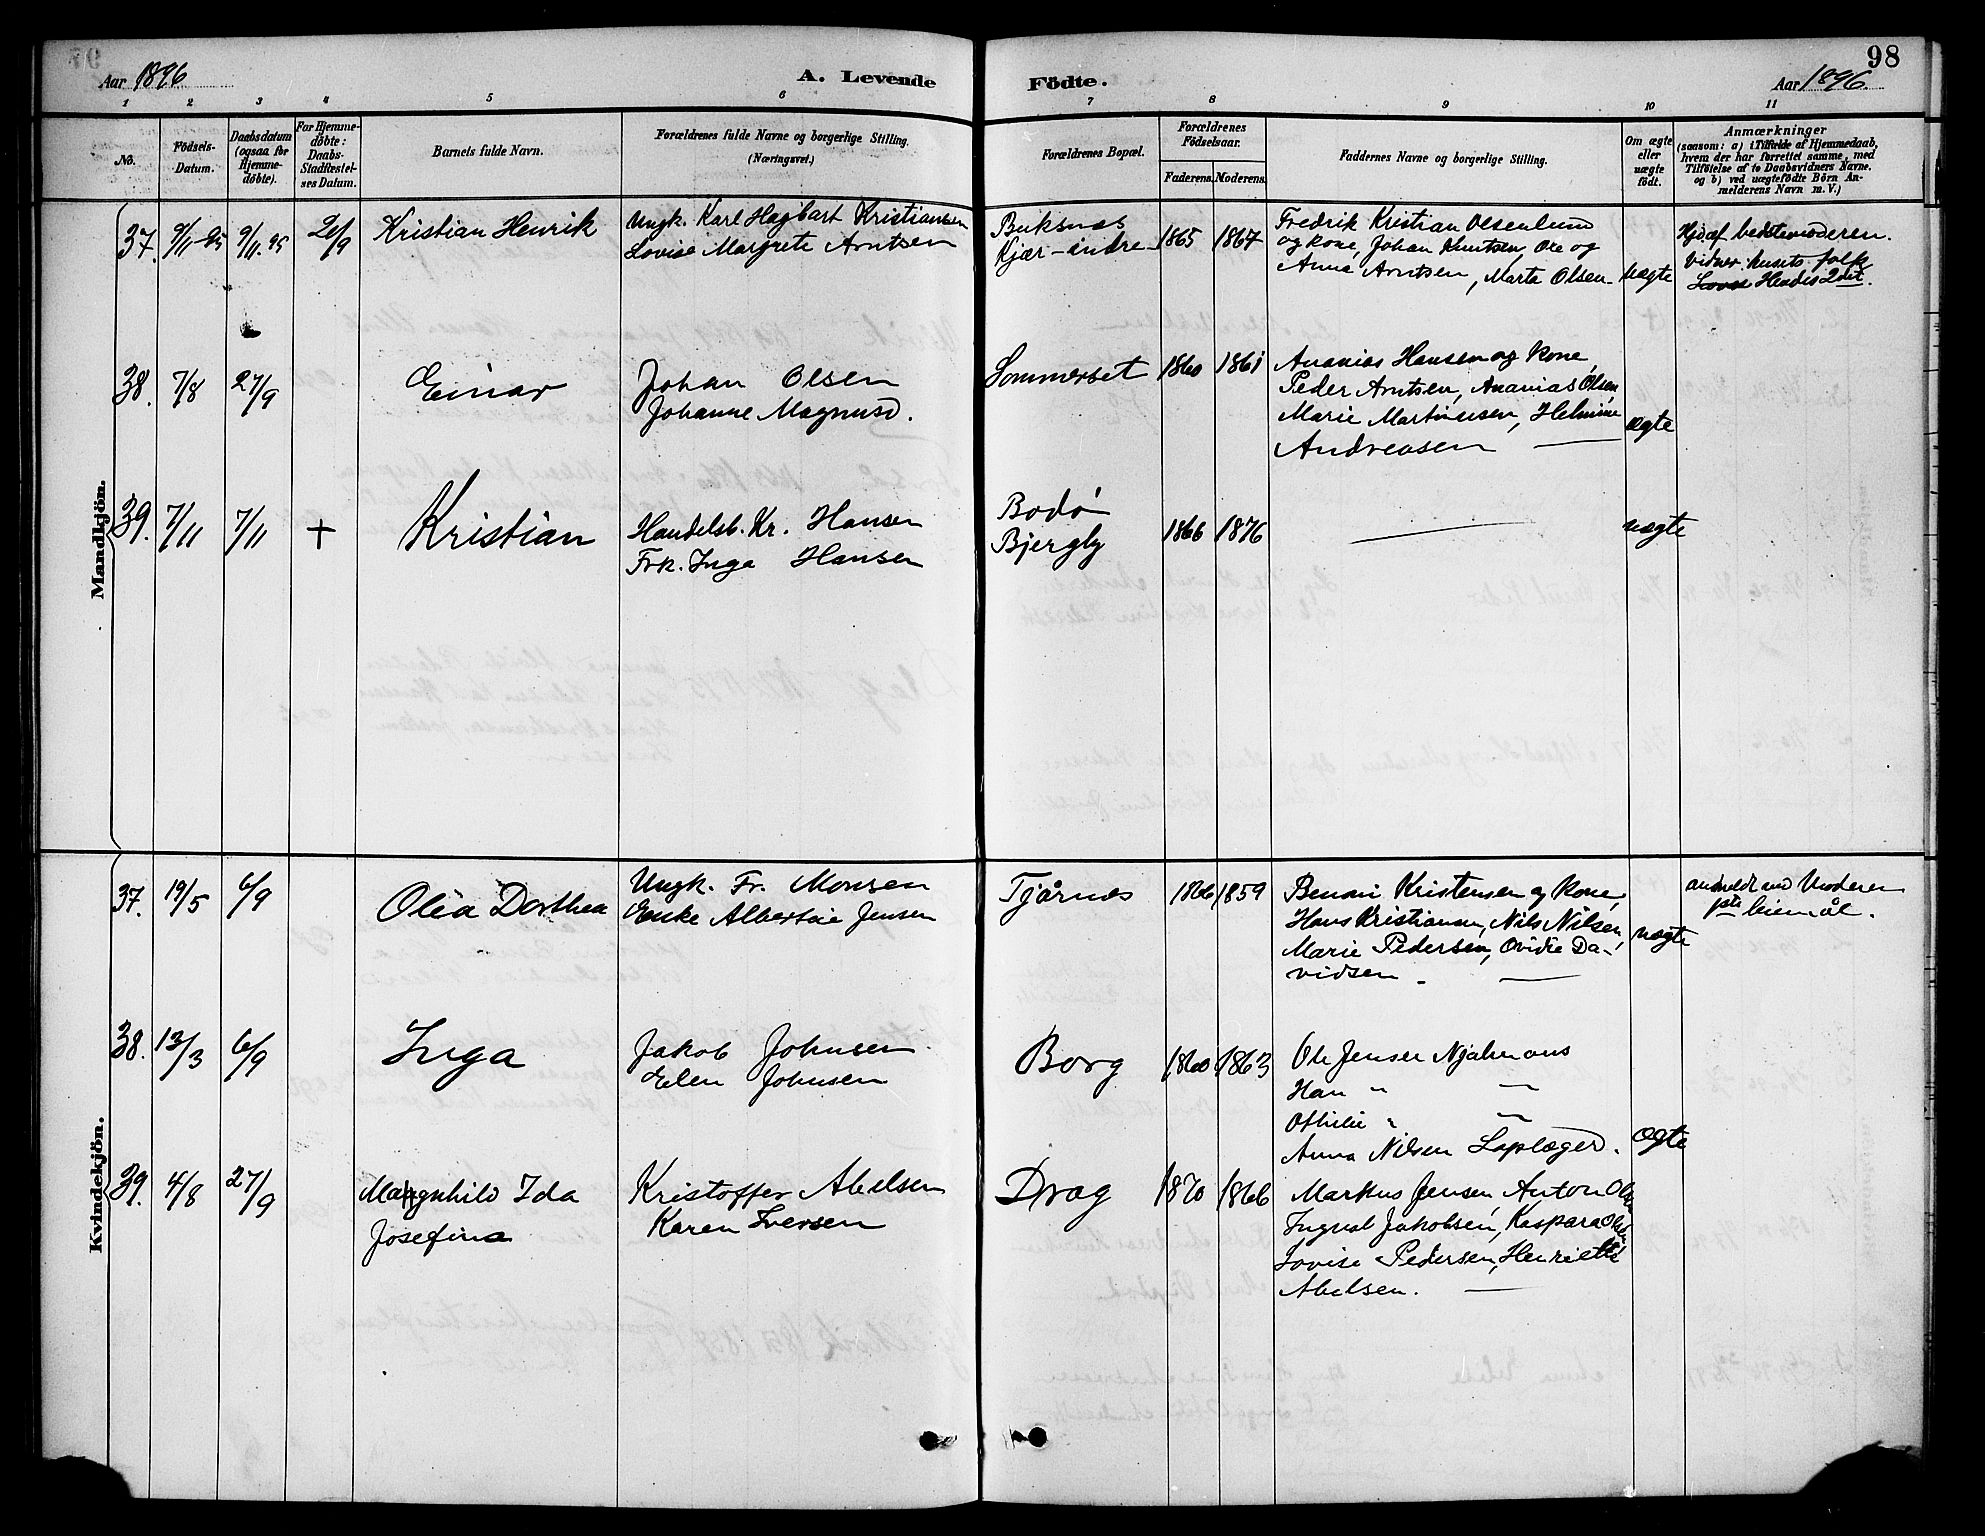 98
Aar 1896.
A. Levende
Födte.
Aar 1896.
1 2 3 4 5 6 7 8 9 10 11
No.
Födsels-
Datum.
Daabsdatum
(ogsaa for
Hjemme-
döbte).
For Hjemme-
döbte:
Daabs-
Stadfæstel-
ses Datum.
Barnets fulde Navn.
Forældrenes fulde Navne og borgerlige Stilling.
(Næringsvei.)
Forældrenes Bopæl.
Forældrenes
Födselsaar.
Faderens. Moderens.
Faddernes Navne og borgerlige Stilling.
Om ægte
eller
uægte
födt.
Anmærkninger
(saasom: a) i Tilfælde af Hjemmedaab,
hvem der har forrettet samme, med
Tilföielse af to Daabsvidners Navne.
og b) ved uægtefödte Börn An-
melderens Navn m. V.)
Mandkjön.
37. 9/11-95 9/11.95 26/9 Kristian Henrik
Ungk. Karl Hagbart Kristiansen
Lovise Margrete Arntsen
Buksnes
Kjær-indre
1865 1867
Fredrik Kristian Olsenlund
og kone, Johan Knutsen, Ole og
Anna Arntsen, Marta Olsen-
uægte
Hjd. af bedstemoderen.
Vidner: husets folk
Hendes 2det.
38. 7/8 27/9 Einar
Johan Olsen
Johanne Magnusd.
Sommerset 1860 1861
Ananias Hansen og kone,
Peder Arntsen, Ananias Olsen
Marie Martinusen, Helmine
Andreasen
ægte
39. 7/11 7/11 + Kristian
Handelsb. Kr. Hansen
Frk. Inga Hansen
Bodø
Bjergly
1866 1876
uægte
Kvindekjön.
37. 19/5 6/9 Olea Dorthea
Ungk. Fr. Monsen
Enke Albertine Jensen
Tjårnes 1866 1859
Benoni Kristensen og kone,
Hans Kristiansen, Nils Nilsen,
Marie Pedersen, Ovidie Da-
vidsen
uægte
anmeldt ved Moderen
1ste leiermål.
38. 13/3 6/9 Inga
Jakob Johnsen
Elen Johnsen
Borg 1860 1863
Ole Jensen
Han "
Othilie "
Anna Nilsen Laplæger.
ægte
39. 4/8 27/9 Magnhild Ida
Josefina
Kristoffer Abelsen
Karen Iversen
Drag 1870 1866
Markus Jensen, Anton Olsen
Ingval Jakobsen, Kaspara Olsen
Lovise Pedersen, Henriette
Abelsen.